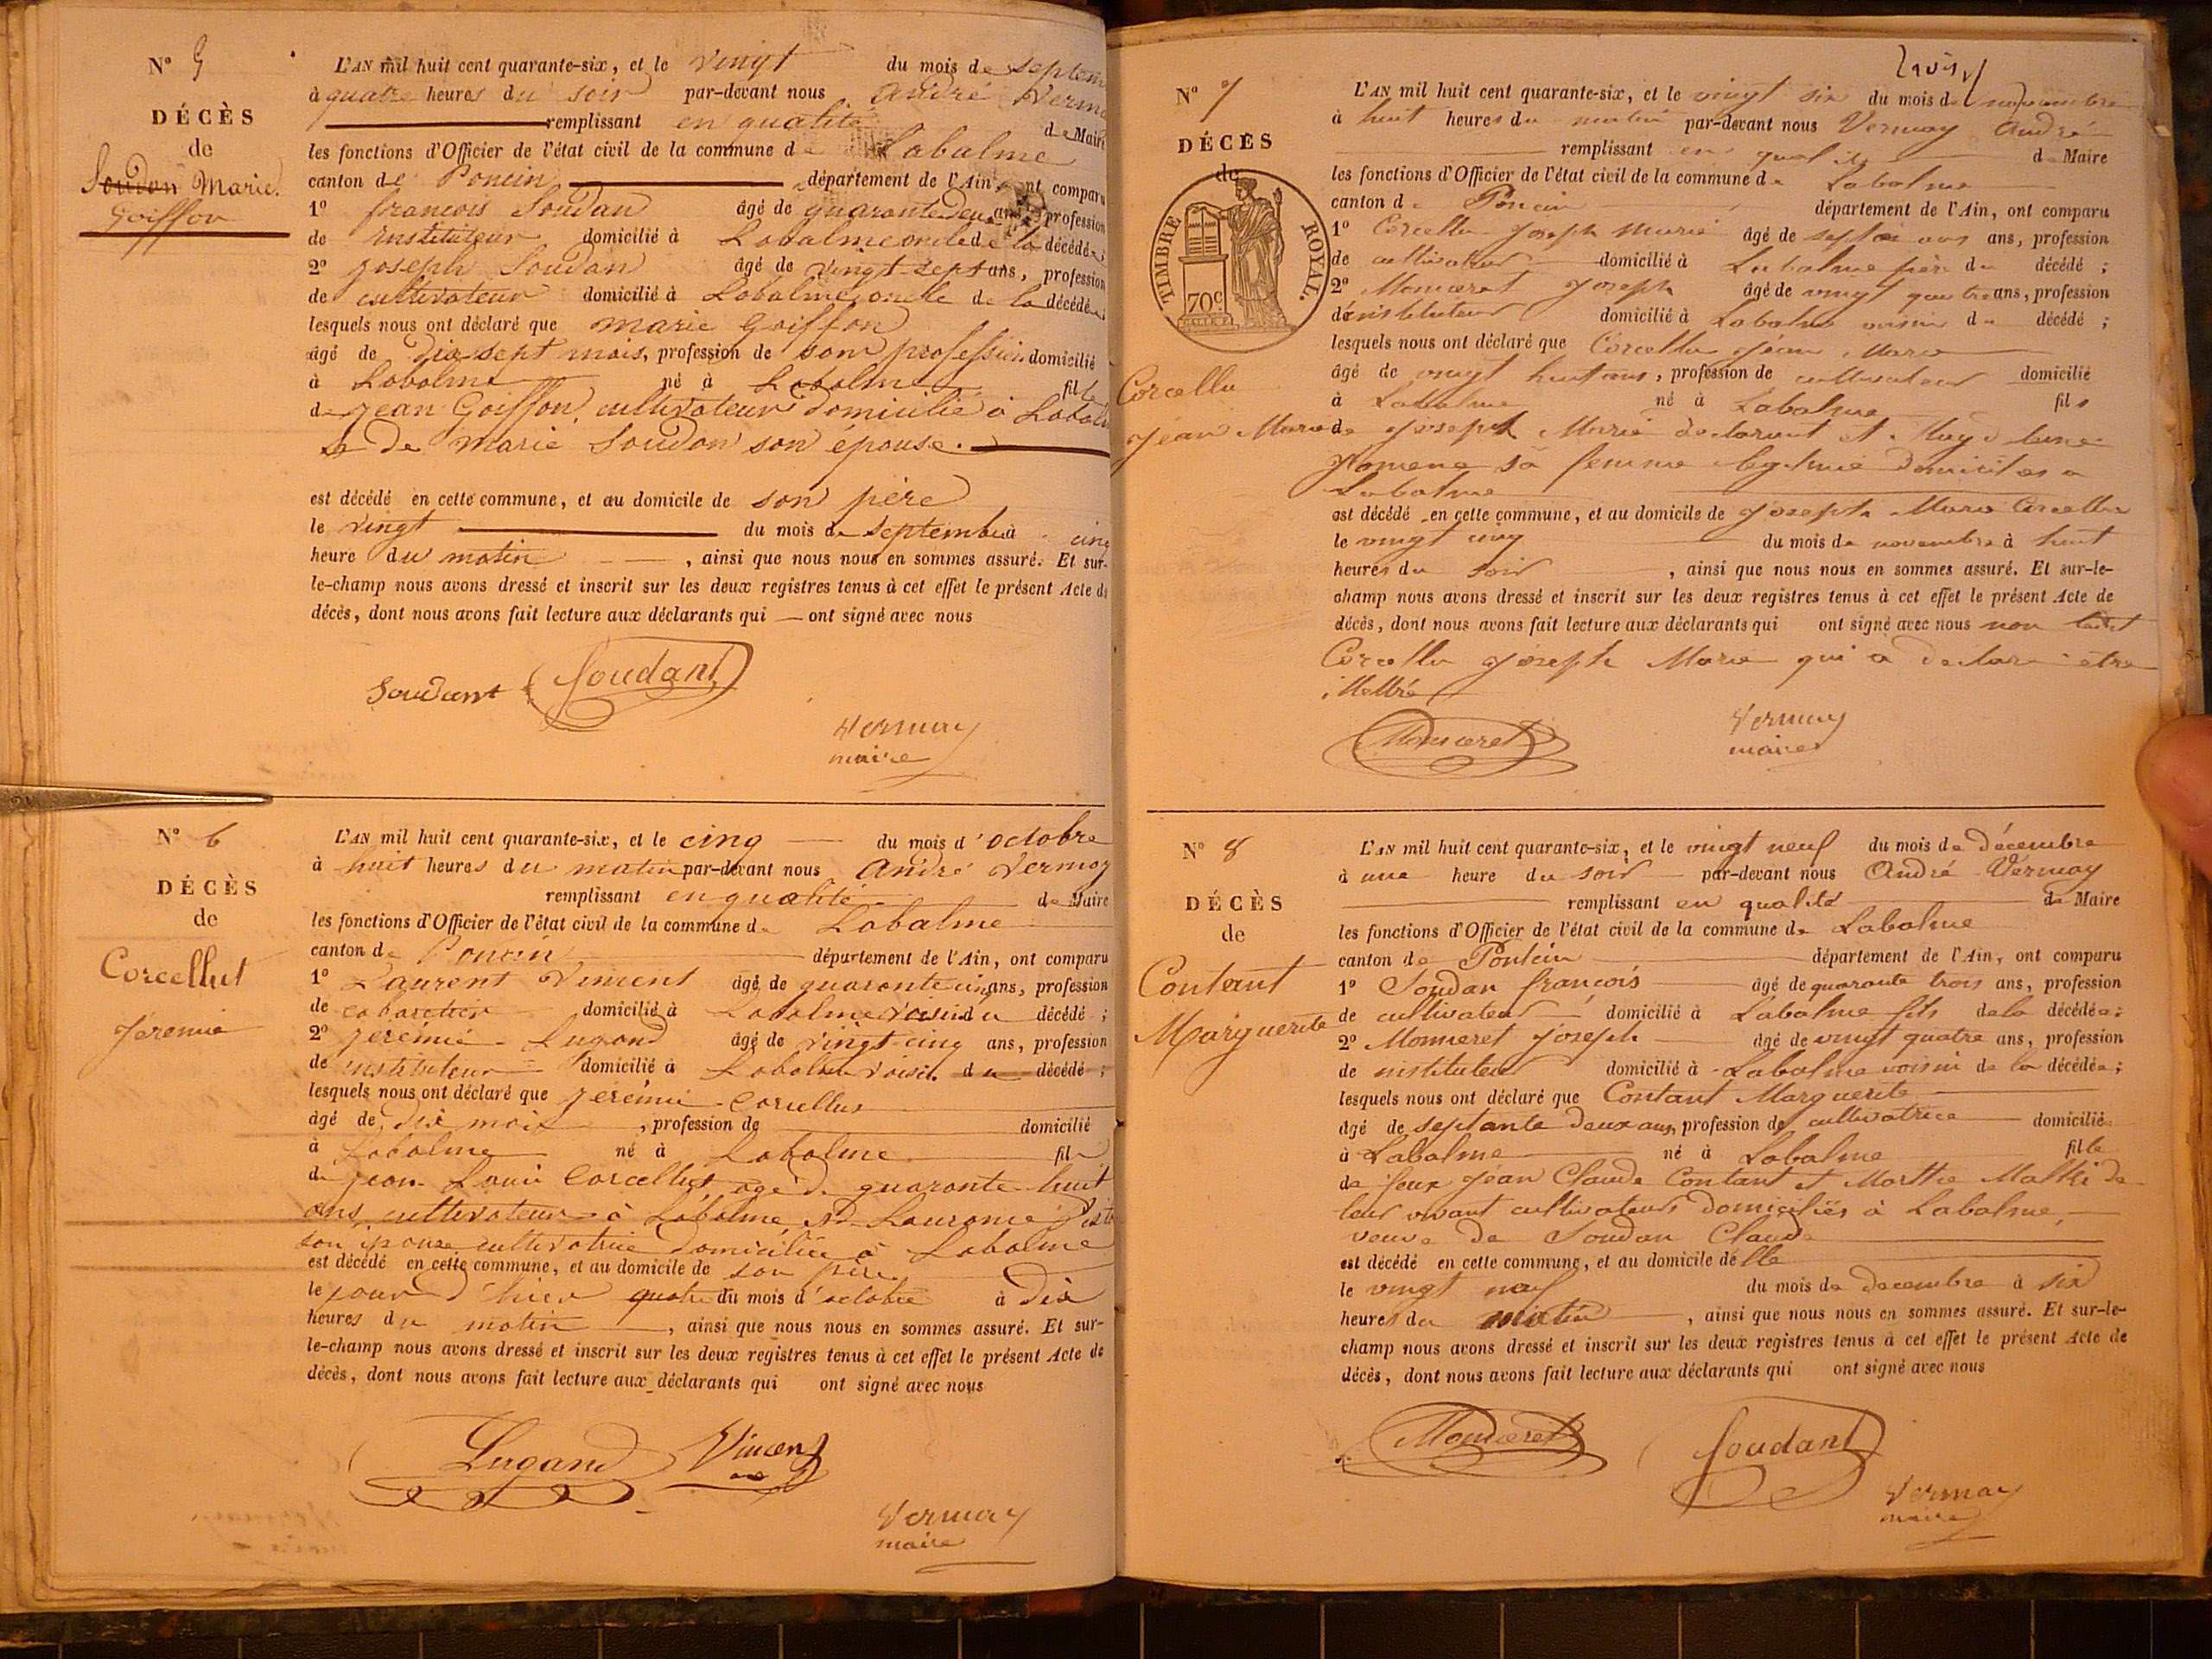 N° 5
DÉCÈS
de
Soudan Marie
Goiffon
L'AN mil huit cent quarante-six, et le vingt du mois de septem
à quatre heures du soir par-devant nous André Verma
remplissant en qualité de Maire
les fonctions d'Officier de l'état civil de la commune de Labalme
canton de Poncin département de l'Ain, ont comparu
1° françois Soudan âgé de quarante deux ans, profession
de instituteur domicilié à Labalme oncle de la décédée;
2° joseph Soudan âgé de vingt sept ans, profession
de cultivateur domicilié à Labalme oncle de la décédée;
lesquels nous ont déclaré que marie Goiffon
âgé de dix sept mois, profession de son profession domicilié
à Labalme né à Labalme fille
de jean Goiffon, cultivateur domicilié à Labalm
et de marie Soudon son épouse.
est décédé en cette commune, et au domicile de son père
le vingt du mois de septembre à cinq
heure du matin, ainsi que nous nous en sommes assuré. Et sur-
le-champ nous avons dressé et inscrit sur les deux registres tenus à cet effet le présent Acte de
décès, dont nous avons fait lecture aux déclarants qui ont signé avec nous
Soudant Soudant
Vermay
maire
N° 6
DÉCÈS
de
Corcellut
Jéremie
L'AN mil huit cent quarante-six, et le cinq du mois d'octobre
à huit heures du matin par-devant nous André Vermay
remplissant en qualité de Maire
les fonctions d'Officier de l'état civil de la commune de Labalme
canton de Poncin département de l'Ain, ont comparu
1° Laurent Vincent âgé de quarante cinq ans, profession
de cabaretier domicilié à Labalme voisin du décédé;
2° jerémie Lugand âgé de vingt cinq ans, profession
de instituteur domicilié à Labalme voisin du décédé;
lesquels nous ont déclaré que jerémie Corcellut
âgé de dix mois, profession de domicilié
à Labalme né à Labalme fils
de jean Louis Corcellut agé de quarante huit
ans, cultivateur à Labalme et Laurence
son épouse cultivatrice domiciliée à Labalme
est décédé en cette commune, et au domicile de son père
le jour d'hier quatre du mois d'octobre à dix
heures du matin, ainsi que nous nous en sommes assuré. Et sur-
le-champ nous avons dressé et inscrit sur les deux registres tenus à cet effet le présent Acte de
décès, dont nous avons fait lecture aux déclarants qui ont signé avec nous
Lugand Vincent
Vermay
maire
N° 7
DÉCÈS
de
TIMBRE ROYAL.
70c
Corcellu
Jean Marie
L'AN mil huit cent quarante-six, et le vingt six du mois de novembre
à huit heures du matin par-devant nous Vermay André
remplissant en qualité de Maire
les fonctions d'Officier de l'état civil de la commune de Labalme
canton de Poncin département de l'Ain, ont comparu
1° Corcellu Joseph Marie âgé de ans, profession
de cultivateur domicilié à Labalme père du décédé;
2° Monneret Joseph âgé de vingt quatre ans, profession
d'instituteur domicilié à Labalme voisin du décédé;
lesquels nous ont déclaré que Corcellu Jean Marie
âgé de vingt huit ans, profession de cultivateur domicilié
à Labalme né à Labalme fils
de Joseph Marie declarant et
sa femme legitime domiciliés a
Labalme
est décédé en cette commune, et au domicile de Joseph Marie Corcellu
le vingt cinq du mois de novembre à huit
heures du soir, ainsi que nous nous en sommes assuré. Et sur-le-
champ nous avons dressé et inscrit sur les deux registres tenus à cet effet le présent Acte de
décès, dont nous avons fait lecture aux déclarants qui ont signé avec nous non
Corcellu Joseph Marie qui a declaré etre
illettré
Monneret
Vermay
maire
N° 8
DÉCÈS
de
Contant
Marguerite
L'AN mil huit cent quarante-six, et le vingt neuf du mois de décembre
à une heure du soir par-devant nous André Vérmay
remplissant en qualité de Maire
les fonctions d'Officier de l'état civil de la commune de Labalme
canton de Pontcin département de l'Ain, ont comparu
1° Soudan françois âgé de quarante trois ans, profession
de cultivateur domicilié à Labalme fils de la décédée;
2° Monneret Joseph âgé de vingt quatre ans, profession
de instituteur domicilié à Labalme voisin de la décédée;
lesquels nous ont déclaré que Contant Marguerite
âgé de septante deux ans, profession de cultivatrice domiciliée
à Labalme né à Labalme fille
de feux Jean Claude Contant et Marthe Mathi de
leur vivant cultivateurs domiciliés à Labalme,
veuve de Soudan Claude
est décédé en cette commune, et au domicile d'elle
le vingt neuf du mois de decembre à six
heures du matin, ainsi que nous nous en sommes assuré. Et sur-le-
champ nous avons dressé et inscrit sur les deux registres tenus à cet effet le présent Acte de
décès, dont nous avons fait lecture aux déclarants qui ont signé avec nous
Monneret Soudant
Vermay
maire